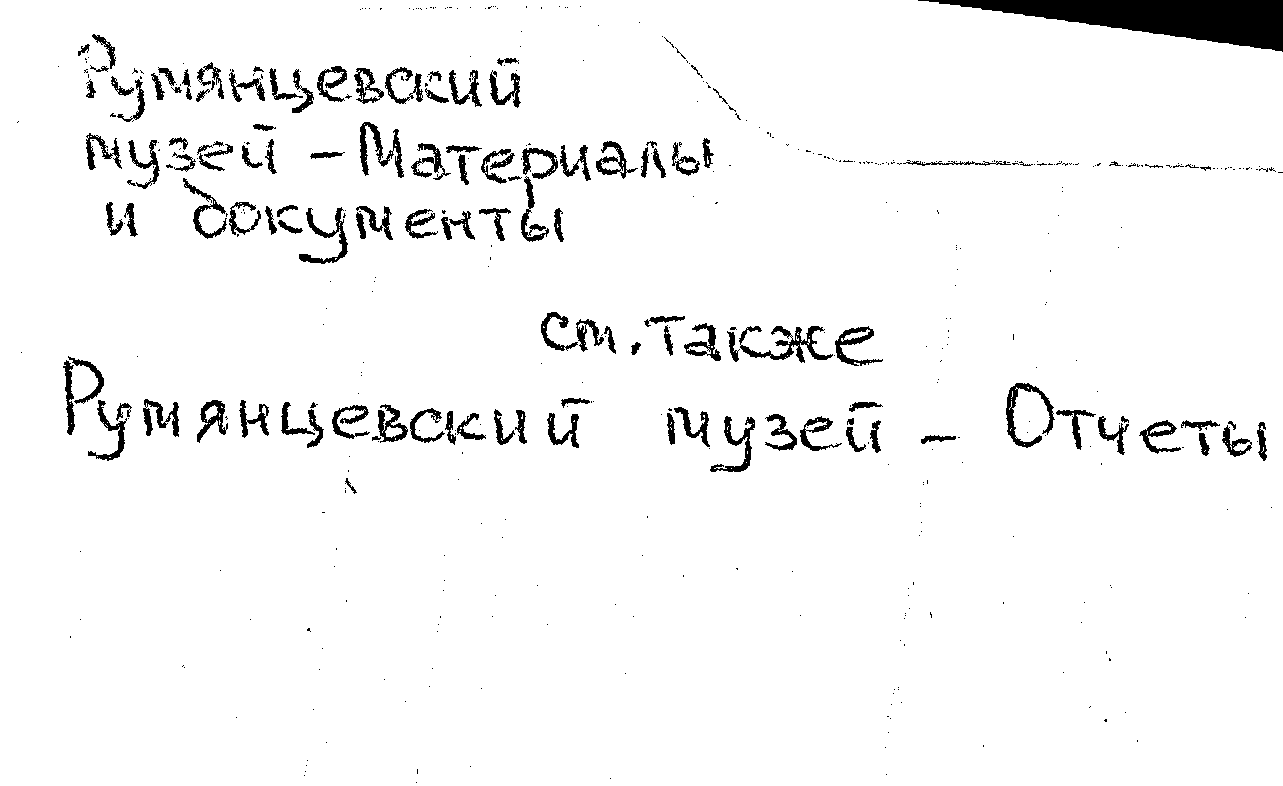 Румянцевский
музей – Материалы
и документы
см. также
Румянцевский музей – Отчеты